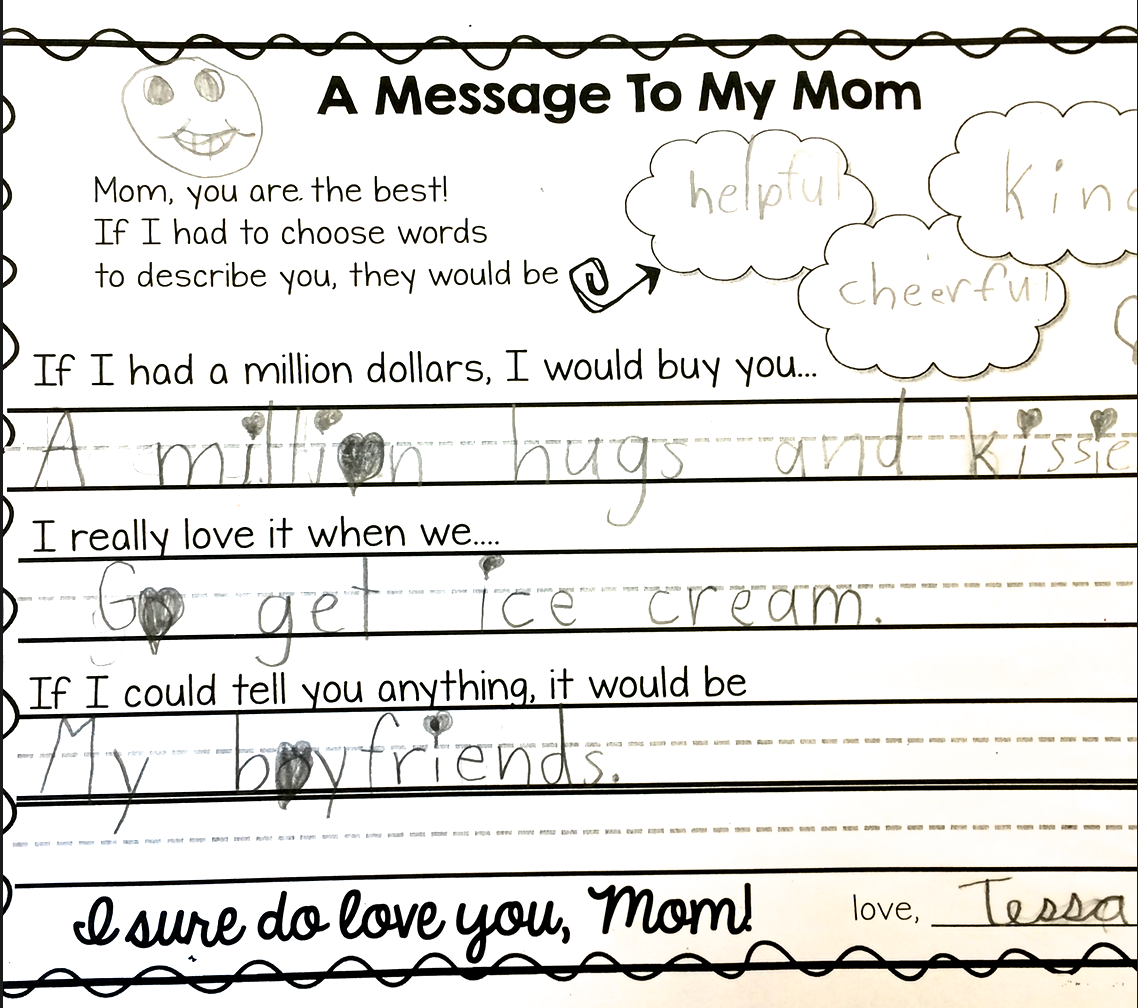 A Message To My Mom
Mom, you are the best!
If I had to choose words
to describe you, they would be
helpful
kind
cheerful
If I had a million dollars, I would buy you...
A million hugs and kissie
I really love it when we....
Go get ice cream.
If I could tell you anything, it would be
My boyfriends.
I sure do love you, Mom!
love, Tessa